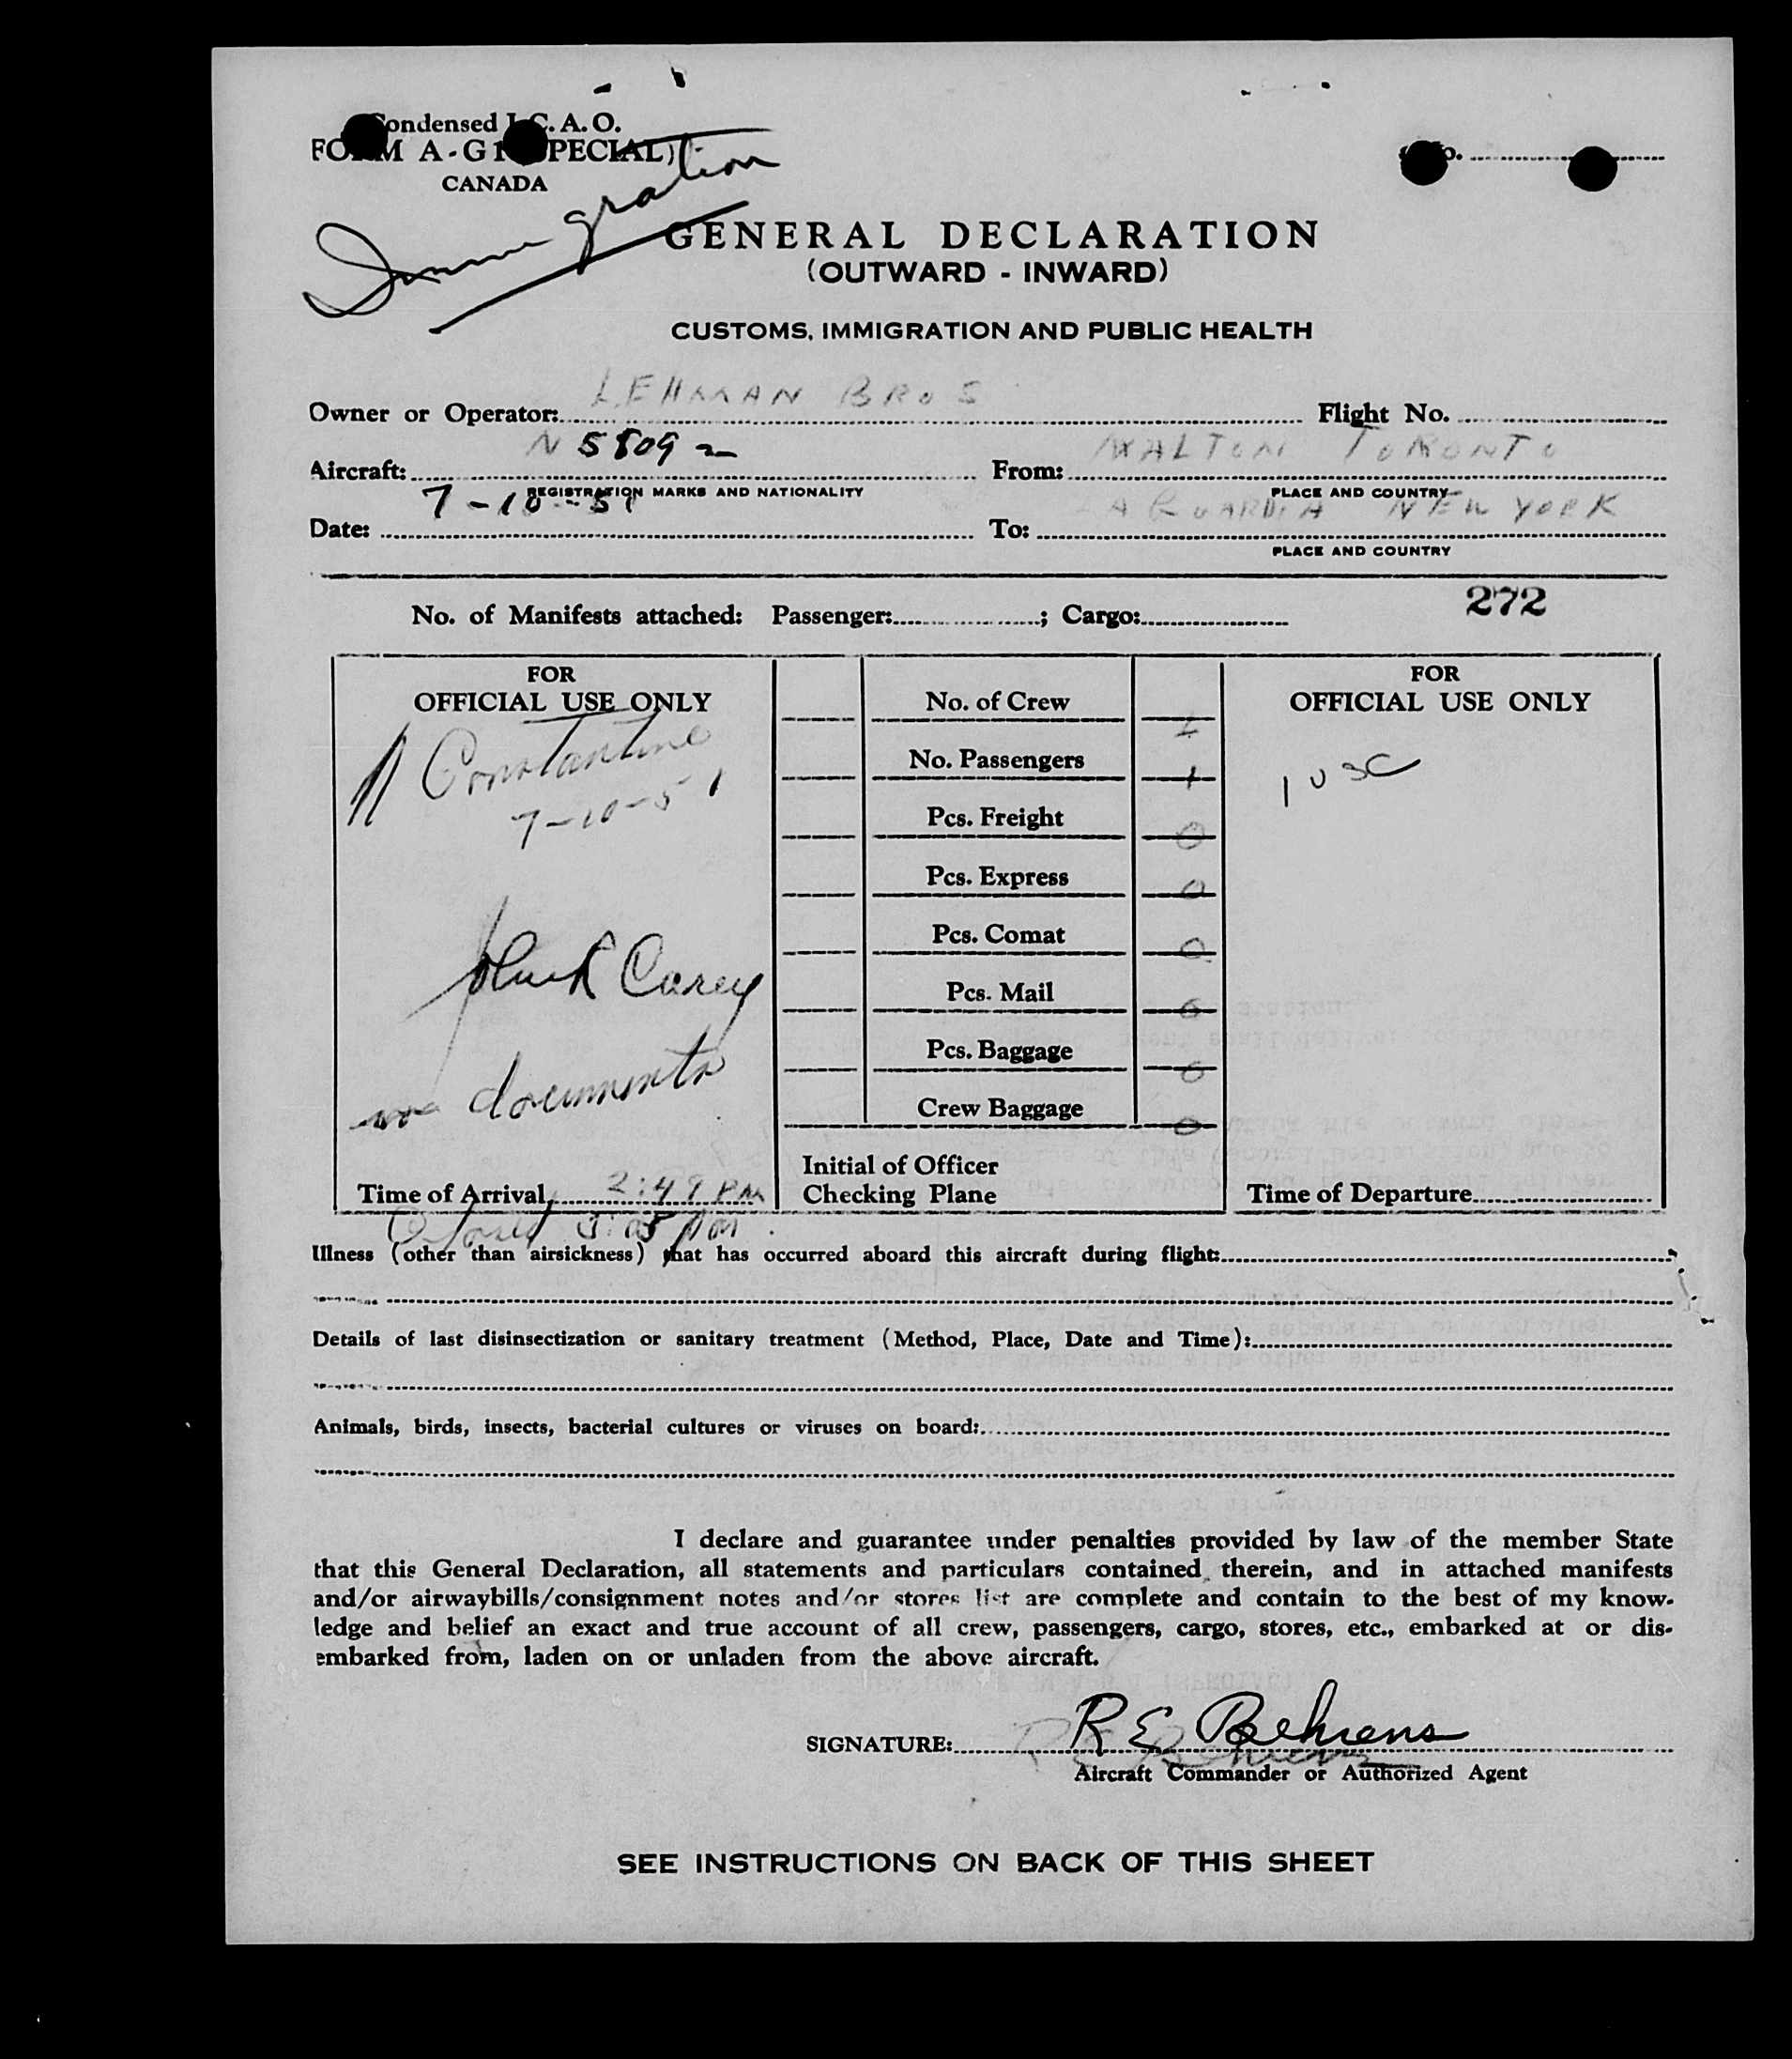 Condensed I.C.A.O.
FORM A-G1 (SPECIAL)
CANADA
Immigration
No.
GENERAL DECLARATION
(OUTWARD - INWARD)
CUSTOMS, IMMIGRATION AND PUBLIC HEALTH
Owner or Operator: LEHMAN BROS Flight No.
Aircraft: N 5809 From: MALTON TORONTO
REGISTRATION MARKS AND NATIONALITY PLACE AND COUNTRY
Date: 7-10-51 To: LAGUARDIA NEW YORK
PLACE AND COUNTRY
No. of Manifests attached: Passenger: ; Cargo: 272
FOR
OFFICIAL USE ONLY
Constantine
7-10-51
Carey
no documents
Time of Arrival 2:49 PM
3:05 PM
No. of Crew 1
No. Passengers 1
Pcs. Freight 0
Pcs. Express 0
Pcs. Comat 0
Pcs. Mail 0
Pcs. Baggage 0
Crew Baggage 0
Initial of Officer
Checking Plane
FOR
OFFICIAL USE ONLY
1 USC
Time of Departure
Illness (other than airsickness) that has occurred aboard this aircraft during flight:
Details of last disinsectization or sanitary treatment (Method, Place, Date and Time):
Animals, birds, insects, bacterial cultures or viruses on board:
I declare and guarantee under penalties provided by law of the member State
that this General Declaration, all statements and particulars contained therein, and in attached manifests
and/or airwaybills/consignment notes and/or stores list are complete and contain to the best of my know-
ledge and belief an exact and true account of all crew, passengers, cargo, stores, etc., embarked at or dis-
embarked from, laden on or unladen from the above aircraft.
SIGNATURE: R E Behrens
Aircraft Commander or Authorized Agent
SEE INSTRUCTIONS ON BACK OF THIS SHEET